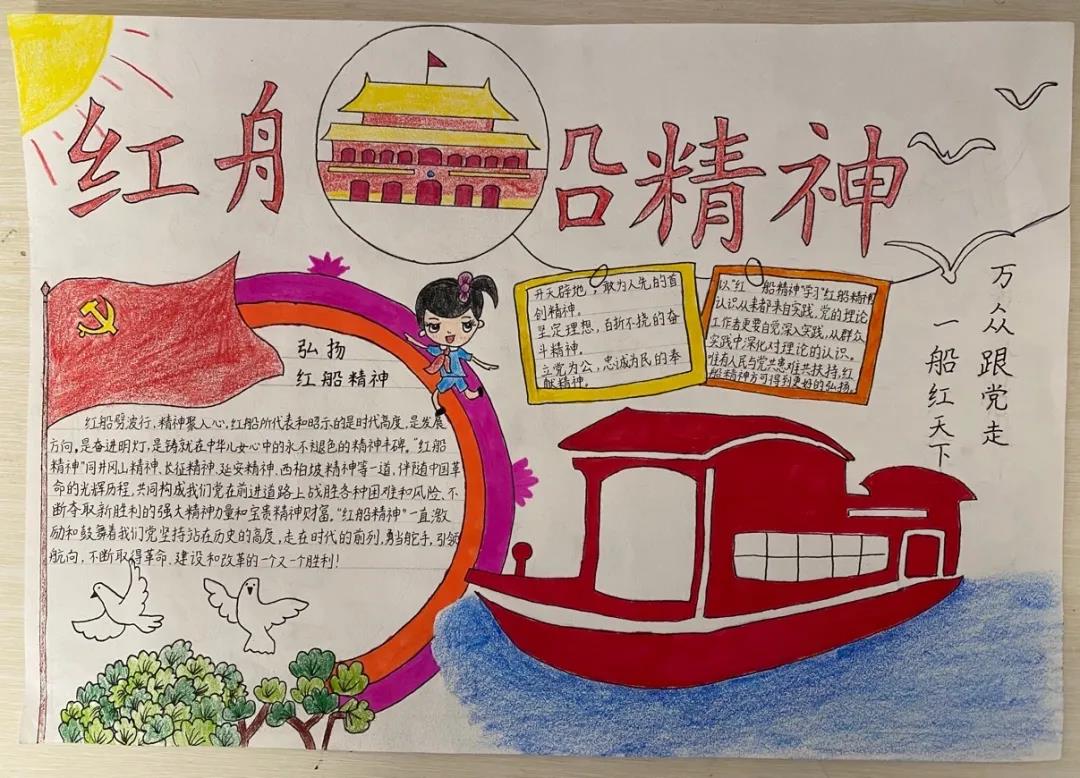 红船精神
弘扬
红船精神
红船劈波行，精神聚人心，红船所代表和昭示的是时代高度，是发展
方向，是奋进明灯，是铸就在中华儿女心中的永不褪色的精神丰碑。“红船
精神”同井冈山精神、长征精神、延安精神、西柏坡精神等一道，伴随中国革
命的光辉历程，共同构成我们党在前进道路上战胜各种困难和风险、不
断夺取新胜利的强大精神力量和宝贵精神财富。“红船精神”一直激
励和鼓舞着我们党坚持站在历史的高度，走在时代的前列，勇当舵手，引领
航向，不断取得革命、建设和改革的一个又一个胜利！
开天辟地，敢为人先的首
创精神。
坚定理想，百折不挠的奋
斗精神。
立党为公，忠诚为民的奉
献精神。
以“红船精神”学习“红船精神”
认识从来都来自实践，党的理论
工作者更要自觉深入实践，从群众
实践中深化对理论的认识。
唯有人民与党共患难共扶持，红
船精神方可得到更好的弘扬。
万众跟党走
一船红天下